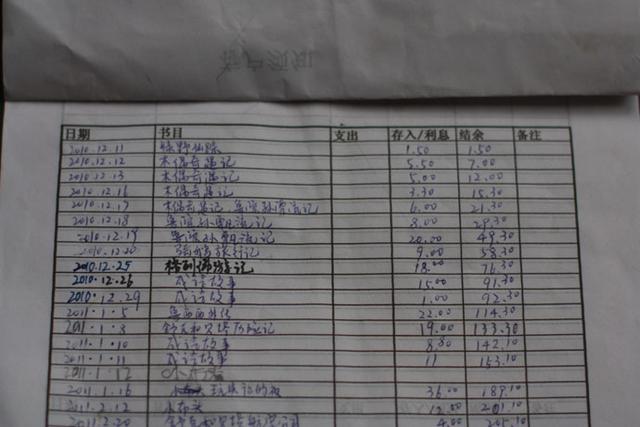 客户须知
日期 书目 支出 存入/利息 结余 备注
2010.12.11 绿野仙踪 1.50 1.50
2010.12.12 木偶奇遇记 5.50 7.00
2010.12.13 木偶奇遇记 5.00 12.00
2010.12.16 木偶奇遇记 3.30 15.30
2010.12.17 木偶奇遇记 鲁滨孙漂流记 6.00 21.30
2010.12.18 鲁滨孙漂流记 8.00 29.30
2010.12.19 鲁滨孙漂流记 20.00 49.30
2010.12.20 9.00 58.30
2010.12.25 格列佛游记 18.00 76.30
2010.12.26 成语故事 15.00 91.30
2010.12.29 成语故事 1.00 92.30
2011.1.5 鲁西西外传 22.00 114.30
2011.1.8 舒克和贝塔历险记 19.00 133.30
2011.1.10 成语故事 8.80 142.10
2011.1.11 成语故事 11 153.10
2011.1.12
2011.1.16 36.00 189.10
2011.2.12 小布头 12.00 201.10
2011.2.20 4.00 205.10